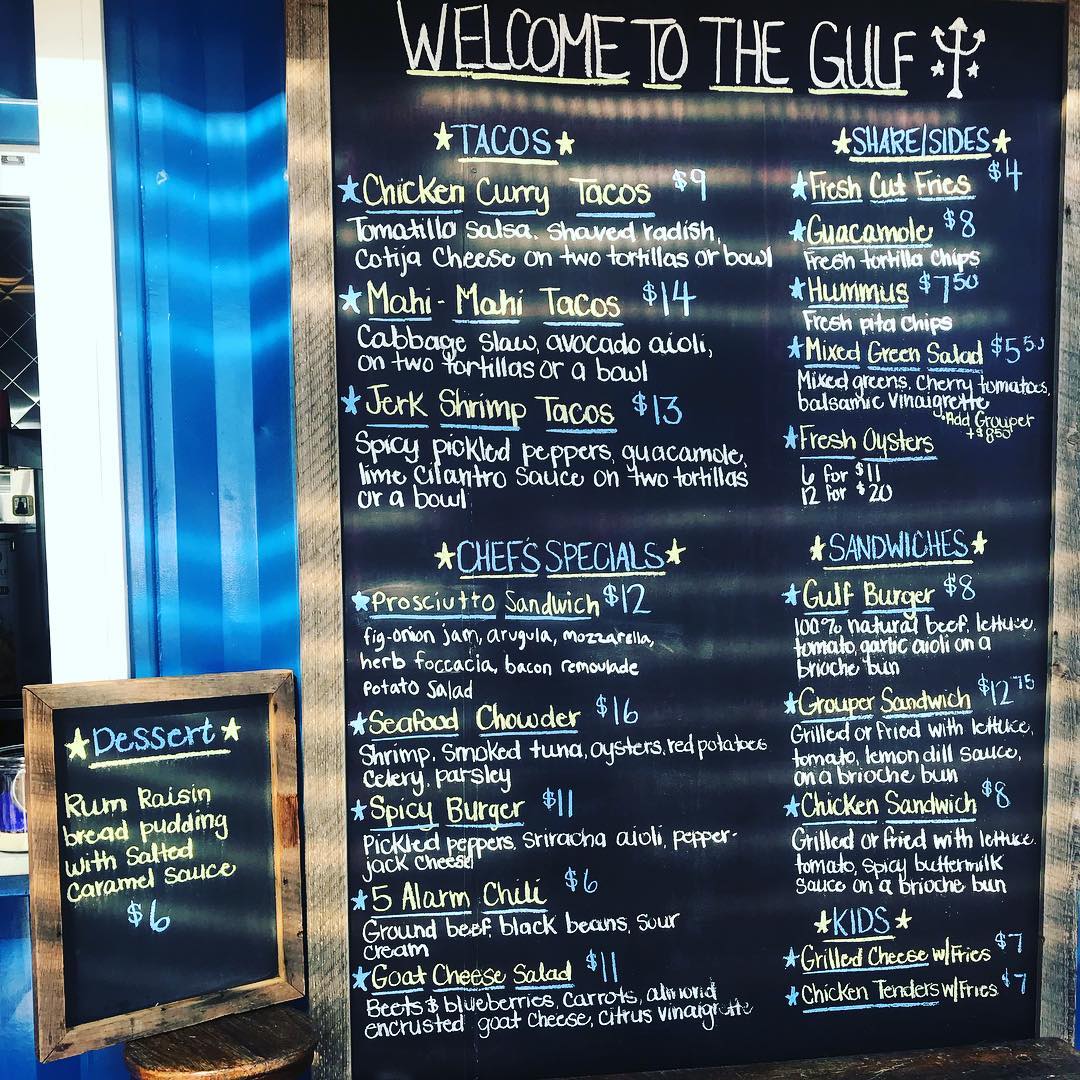 WELCOME TO THE GULF
TACOS
Chicken Curry Tacos $9
Tomatillo salsa, shaved radish,
Cotija Cheese on two tortillas or bowl
Mahi-Mahi Tacos $14
Cabbage slaw, avocado aioli,
on two tortillas or a bowl
Jerk Shrimp Tacos $13
Spicy pickled peppers, guacamole,
lime cilantro sauce on two tortillas
or a bowl
CHEF'S SPECIALS
Prosciutto Sandwich $12
fig-onion jam, arugula, mozzarella,
herb foccacia, bacon remoulade
Potato Salad
Seafood Chowder $16
Shrimp, smoked tuna, oysters, red potatoes
Celery, parsley
Spicy Burger $11
Pickled peppers, sriracha aioli, pepper-
jack cheese
5 Alarm Chili $6
Ground beef, black beans, sour
cream
Goat Cheese Salad $11
Beets & blueberries, carrots, almond
encrusted goat cheese, citrus vinaigrette
SHARE/SIDES
Fresh Cut Fries $4
Guacamole $8
Fresh tortilla chips
Hummus $7.50
Fresh pita chips
Mixed Green Salad $5.50
Mixed greens, Cherry tomatoes,
balsamic vinaigrette
*Add Grouper
+$8.50
Fresh Oysters
6 for $11
12 for $20
SANDWICHES
Gulf Burger $8
100% natural beef, lettuce,
tomato, garlic aioli on a
brioche bun
Grouper Sandwich $12.75
Grilled or fried with lettuce,
tomato, lemon dill sauce,
on a brioche bun
Chicken Sandwich $8
Grilled or fried with lettuce,
tomato, spicy buttermilk
sauce on a brioche bun
KIDS
Grilled Cheese w/Fries $7
Chicken Tenders w/Fries $7
Dessert
Rum Raisin
bread pudding
with Salted
Caramel Sauce
$6